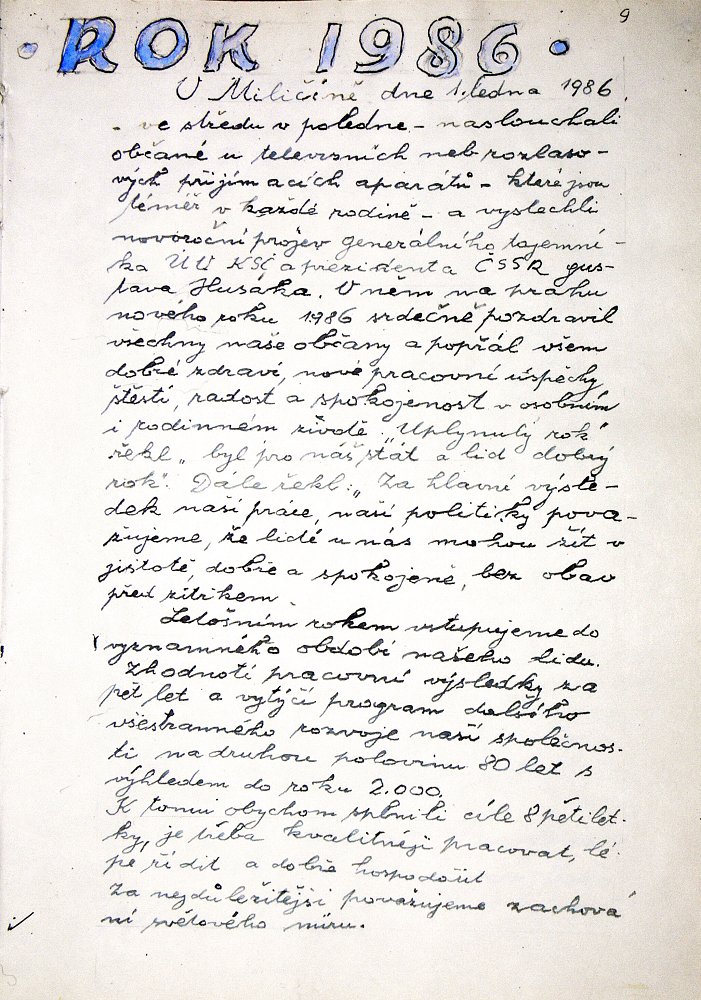 9
• ROK 1986 •
V Miličíně dne 1. ledna 1986
- ve středu v poledne - naslouchali
občané u televisních neb rozlaso-
vých přijímacích aparátů - které jsou
téměř v každé rodině - a vyslechli
novoroční projev generálního tajemní-
ka ÚV KSČ a prezidenta ČSSR gus-
tava Husáka. V něm na prahu
nového roku 1986 srdečně pozdravil
všechny naše občany a popřál všem
dobré zdraví, nové pracovní úspěchy,
štěstí, radost a spokojenost v osobním
i rodinném životě. "Uplynulý rok"
řekl „ byl pro náš stát a lid dobrý
rok". Dále řekl: „ Za hlavní výsle-
dek naší práce, naší politiky pova-
žujeme, že lidé u nás mohou žít v
jistotě, dobře a spokojeně, bez obav
před zítřkem.
Letošním rokem vstupujeme do
významného období našeho lidu.
Zhodnotí pracovní výsledky za
pět let a vytýčí program dalšího
všestranného rozvoje naší společnos-
ti na druhou polovinu 80 let s
výhledem do roku 2.000.
K tomu abychom splnili cíle 8 pětilet-
ky, je třeba kvalitněji pracovat, lé-
pe řídit a dobře hospodařit
Za nejdůležitější považujeme zachová
ní světového míru.